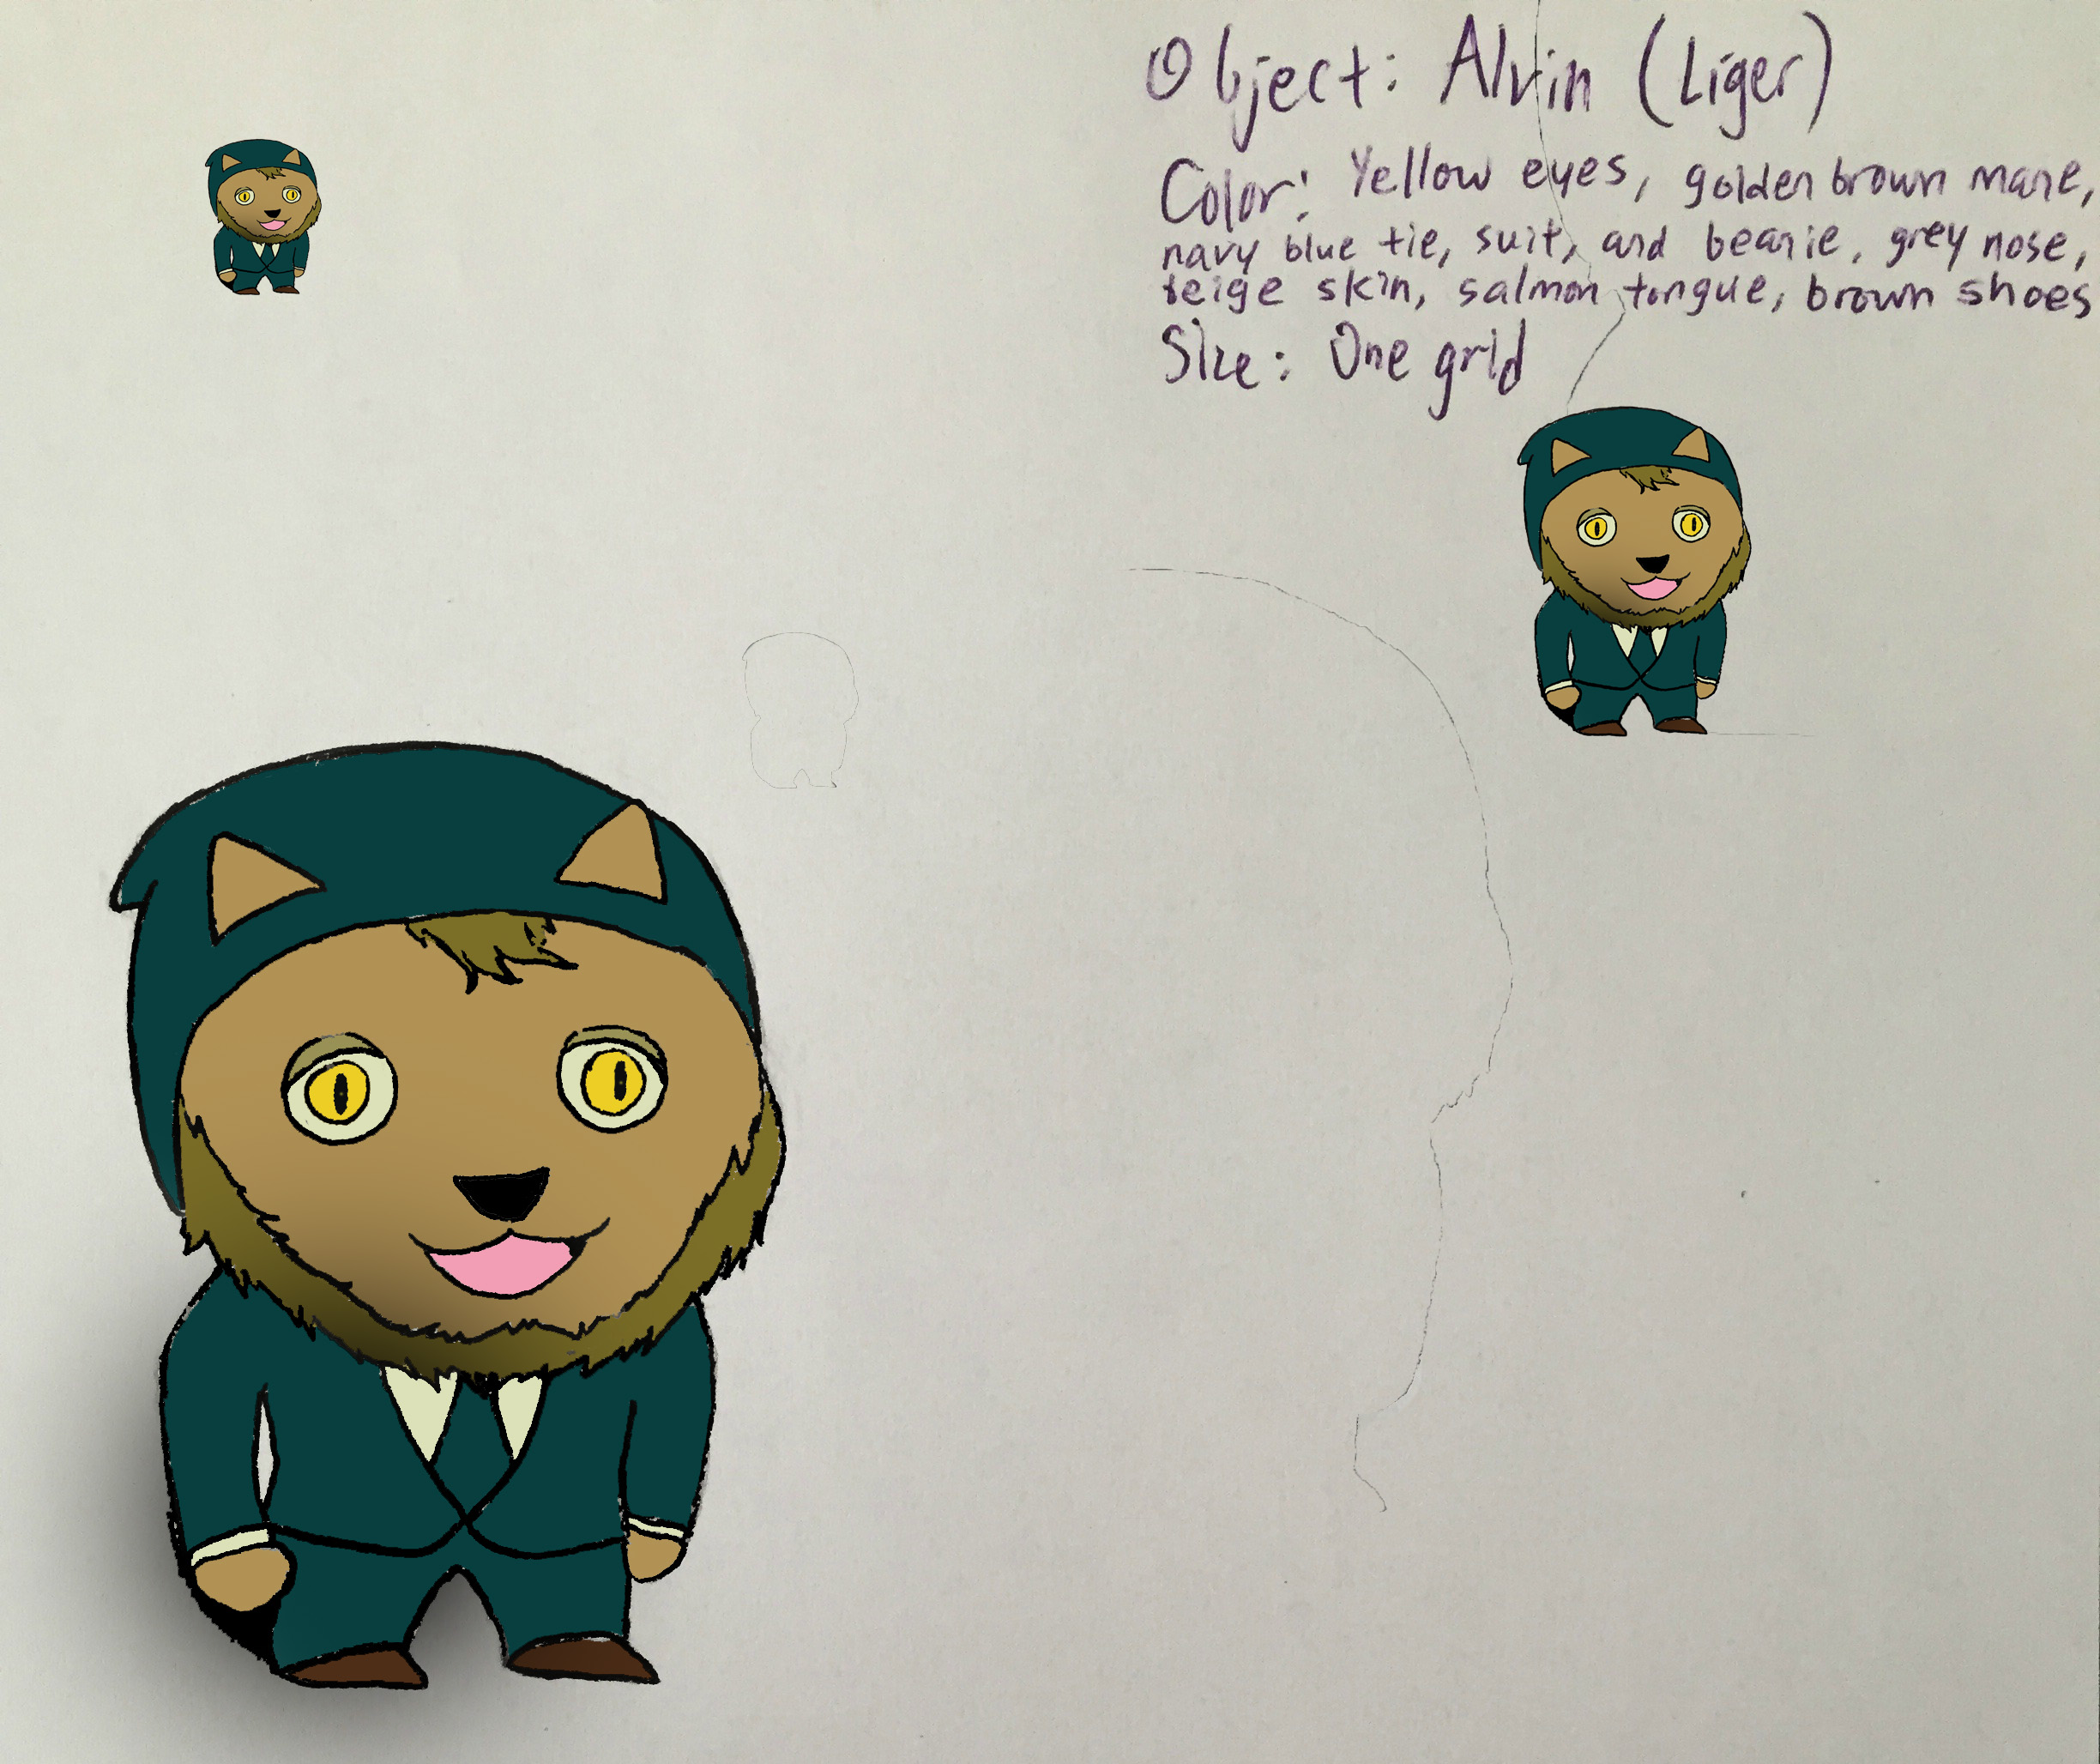 Object: Alvin (Liger)
Color: Yellow eyes, golden brown mane,
navy blue tie, suit, and beanie, grey nose,
beige skin, salmon tongue, brown shoes
Size: One grid